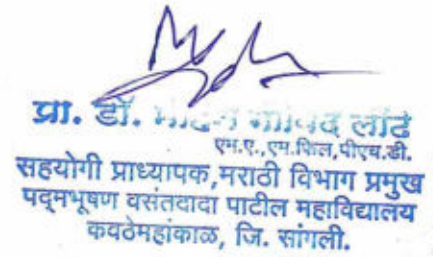 प्रा. डॉ. गोविंद लोंढे
एम.ए.,एम.फिल,पीएच.डी.
सहयोगी प्राध्यापक,मराठी विभाग प्रमुख
पद्मभूषण वसंतदादा पाटील महाविद्यालय
कवठेमहांकाळ, जि. सांगली.